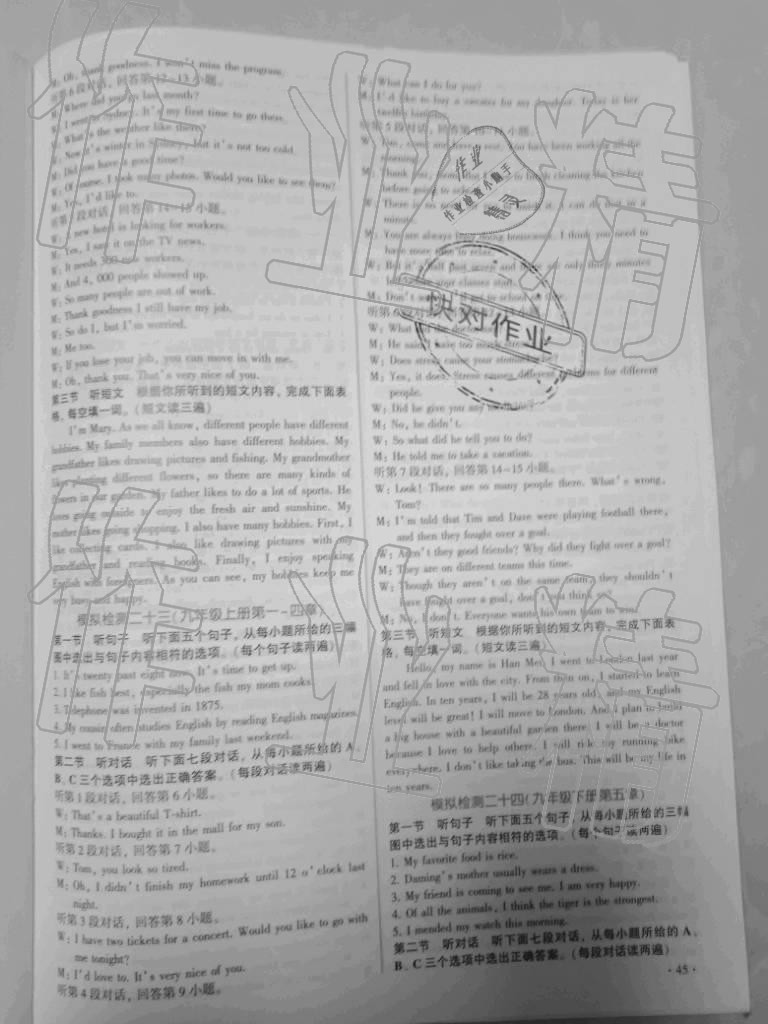 M: Oh, thank goodness. I won't miss the program.
听第6段对话，回答第12-13小题。
M: Where did you go last month?
W: I went to Sydney. It's my first time to go there.
M: What's the weather like there?
W: Now it's winter in Sydney, but it's not too cold.
M: Did you have a good time?
W: Of course. I took many photos. Would you like to see them?
M: Yes, I'd like to.
听第7段对话，回答第14-15小题。
W: A new hotel is looking for workers.
M: Yes, I saw it on the TV news.
W: It needs 300 new workers.
M: And 4,000 people showed up.
W: So many people are out of work.
M: Thank goodness I still have my job.
W: So do I, but I'm worried.
M: Me too.
W: If you lose your job, you can move in with me.
M: Oh, thank you. That's very nice of you.
第三节 听短文 根据你所听到的短文内容，完成下面表
格，每空填一词。（短文读三遍）
I'm Mary. As we all know, different people have different
hobbies. My family members also have different hobbies. My
grandfather likes drawing pictures and fishing. My grandmother
likes planting different flowers, so there are many kinds of
flowers in our garden. My father likes to do a lot of sports. He
loves going outside to enjoy the fresh air and sunshine. My
mother likes going shopping. I also have many hobbies. First, I
like collecting cards. I also like drawing pictures with my
grandfather and reading books. Finally, I enjoy speaking
English with foreigners. As you can see, my hobbies keep me
very busy and happy.
模拟检测二十三（九年级上册第一~四章）
第一节 听句子 听下面五个句子，从每小题所给的三幅
图中选出与句子内容相符的选项。（每个句子读两遍）
1. It's twenty past eight now. It's time to get up.
2. I like fish best, especially the fish my mom cooks.
3. Telephone was invented in 1875.
4. My cousin often studies English by reading English magazines.
5. I went to France with my family last weekend.
第二节 听对话 听下面七段对话，从每小题所给的 A、
B、C 三个选项中选出正确答案。（每段对话读两遍）
听第1段对话，回答第6小题。
W: That's a beautiful T-shirt.
M: Thanks. I bought it in the mall for my son.
听第2段对话，回答第7小题。
W: Tom, you look so tired.
M: Oh, I didn't finish my homework until 12 o'clock last
night.
听第3段对话，回答第8小题。
W: I have two tickets for a concert. Would you like to go with
me tonight?
M: I'd love to. It's very nice of you.
听第4段对话，回答第9小题。
W: What can I do for you?
M: I'd like to buy a sweater for my daughter. Today is her
twelfth birthday.
听第5段对话，回答第10-11小题。
W: you have been working all the
morning.
M: Thank you, cleaning the kitchen
before going to school.
W: There is no I can do that in a
minute.
M: You are always busy doing housework. I think you need to
have more time to relax.
W: But it's half past seven and only thirty minutes
before your classes start.
M: Don't school on time.
听第6段对话，回答第12-13小题。
W: What did the doctor
M: He said I have too much stress.
W: Does stress cause your stomachache?
M: Yes, it does. Stress causes different problems for different
people.
W: Did he give you any medicine?
M: No, he didn't.
W: So what did he tell you to do?
M: He told me to take a vacation.
听第7段对话，回答第14-15小题。
W: Look! There are so many people there. What's wrong,
Tom?
M: I'm told that Tim and Dave were playing football there,
and then they fought over a goal.
W: Aren't they good friends? Why did they fight over a goal?
M: They are on different teams this time.
W: Though they aren't on the same team, they shouldn't
have fought over a goal, don't you think so?
M: No, I don't. Everyone wants his own team to win.
第三节 听短文 根据你所听到的短文内容，完成下面表
格，每空填一词。（短文读三遍）
Hello, my name is Han Mei. I went to London last year
and fell in love with the city. From then on, I started to learn
English. In ten years, I will be 28 years old, and my English
level will be great! I will move to London. And I plan to build
a big house with a beautiful garden there. I will be a doctor
because I love to help others. I will ride my running bike
everywhere. I don't like taking the bus. This will be my life in
ten years.
模拟检测二十四（九年级下册第五章）
第一节 听句子 听下面五个句子，从每小题所给的三幅
图中选出与句子内容相符的选项。（每个句子读两遍）
1. My favorite food is rice.
2. Daming's mother usually wears a dress.
3. My friend is coming to see me. I am very happy.
4. Of all the animals, I think the tiger is the strongest.
5. I mended my watch this morning.
第二节 听对话 听下面七段对话，从每小题所给的 A、
B、C 三个选项中选出正确答案。（每段对话读两遍）
· 45 ·
作业
作业检查小助手
精灵
快对作业
作业精灵
作业精灵